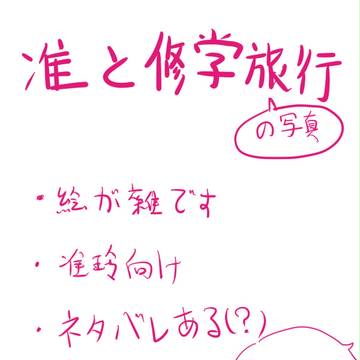 准と修学旅行
の写真
・絵が雑です
・准玲向け
・ネタバレある(?)